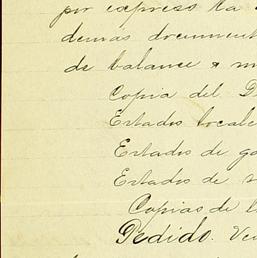 por express la
demas document
de balance & m
Copia del D
Estados locale
Estados de ga
Estados de
Copias de l
Pedido. Ve